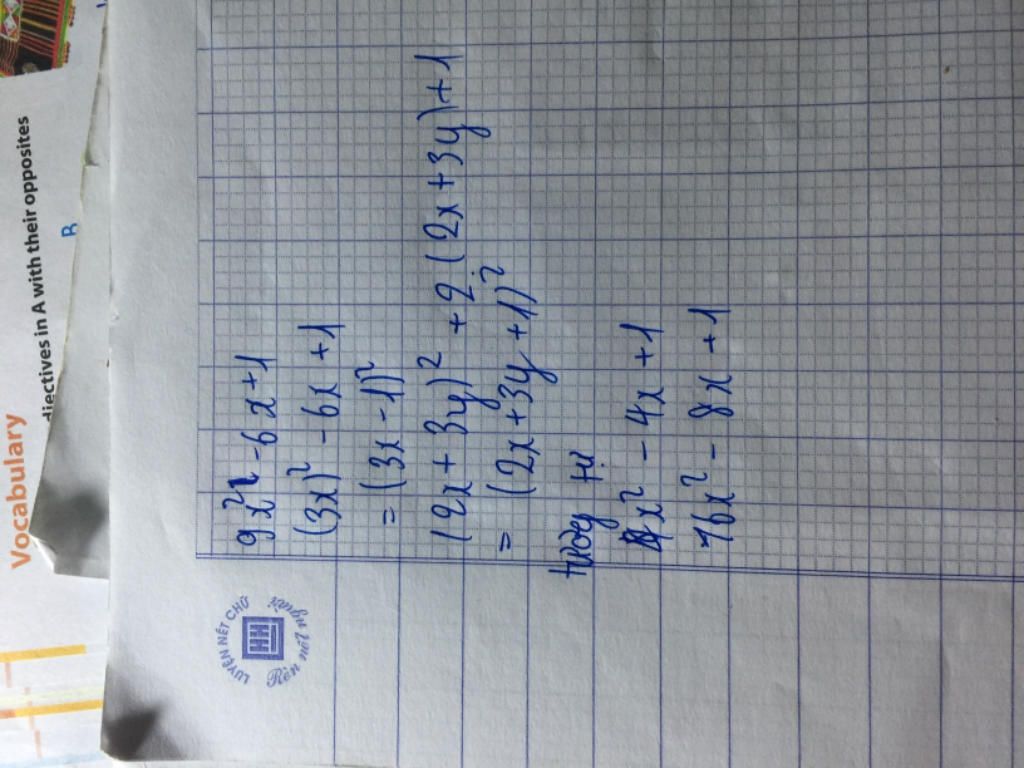 Vocabulary
djectives in A with their opposites
B
LUYỆN NÉT CHỮ
HH
Rèn nết người
9x² - 6x + 1
(3x)² - 6x + 1
= (3x - 1)²
(2x + 3y)² + 2.(2x + 3y) + 1
= (2x + 3y + 1)²
tương tự
4x² - 4x + 1
16x² - 8x + 1